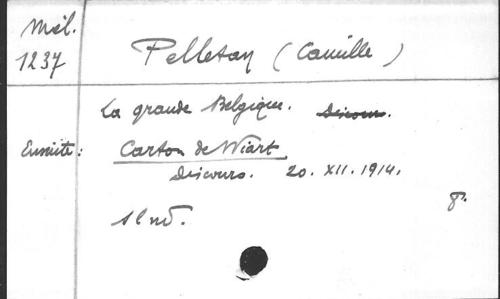 Mél.
1237
Pelletan (Camille)
La grande Belgique. Discours.
Ensuite: Carton de Wiart
Discours. 20. XII. 1914.
8°.
s l nd.